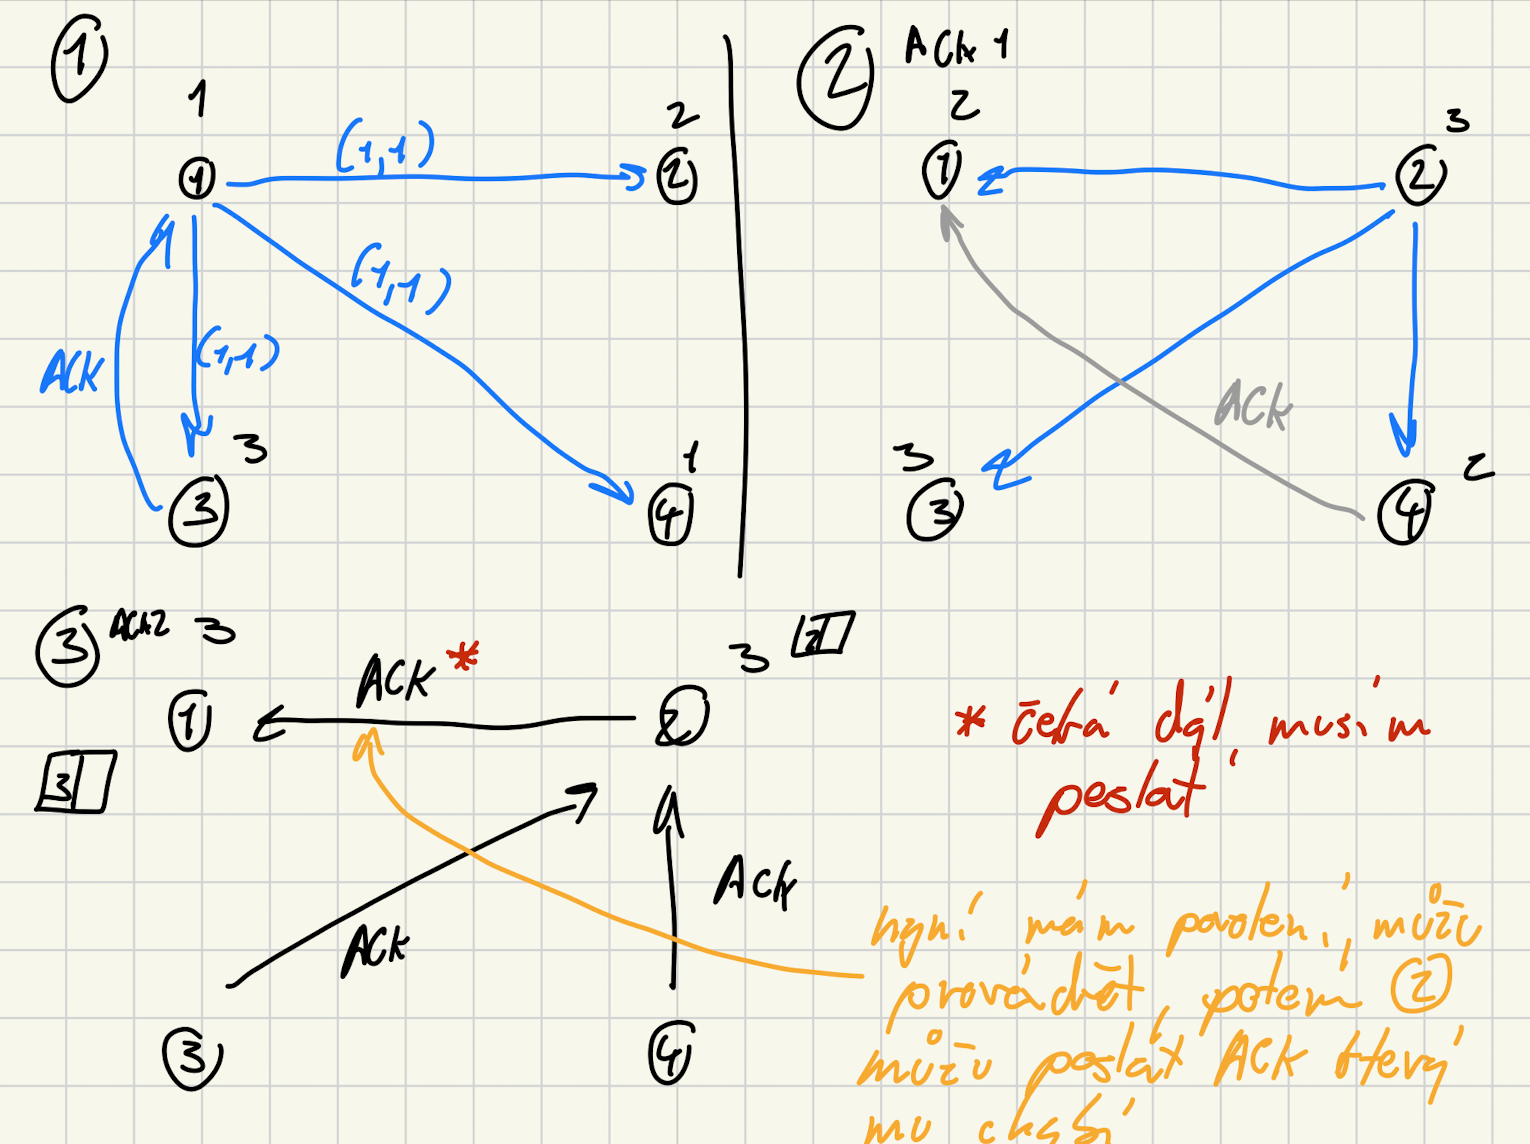 1
1
1
(1,1)
2
2
(1,1)
ACK
(1,1)
3
3
1
4
2
ACK 1
2
1
3
2
ACK
3
3
2
4
3
ACK2
3
1
ACK *
3
2
2
3
ACK
ACK
3
4
* čeká dál, musím
poslat
nyní mám povolení, můžu
provádět, potém 2
můžu poslat ACK který
mu chybí